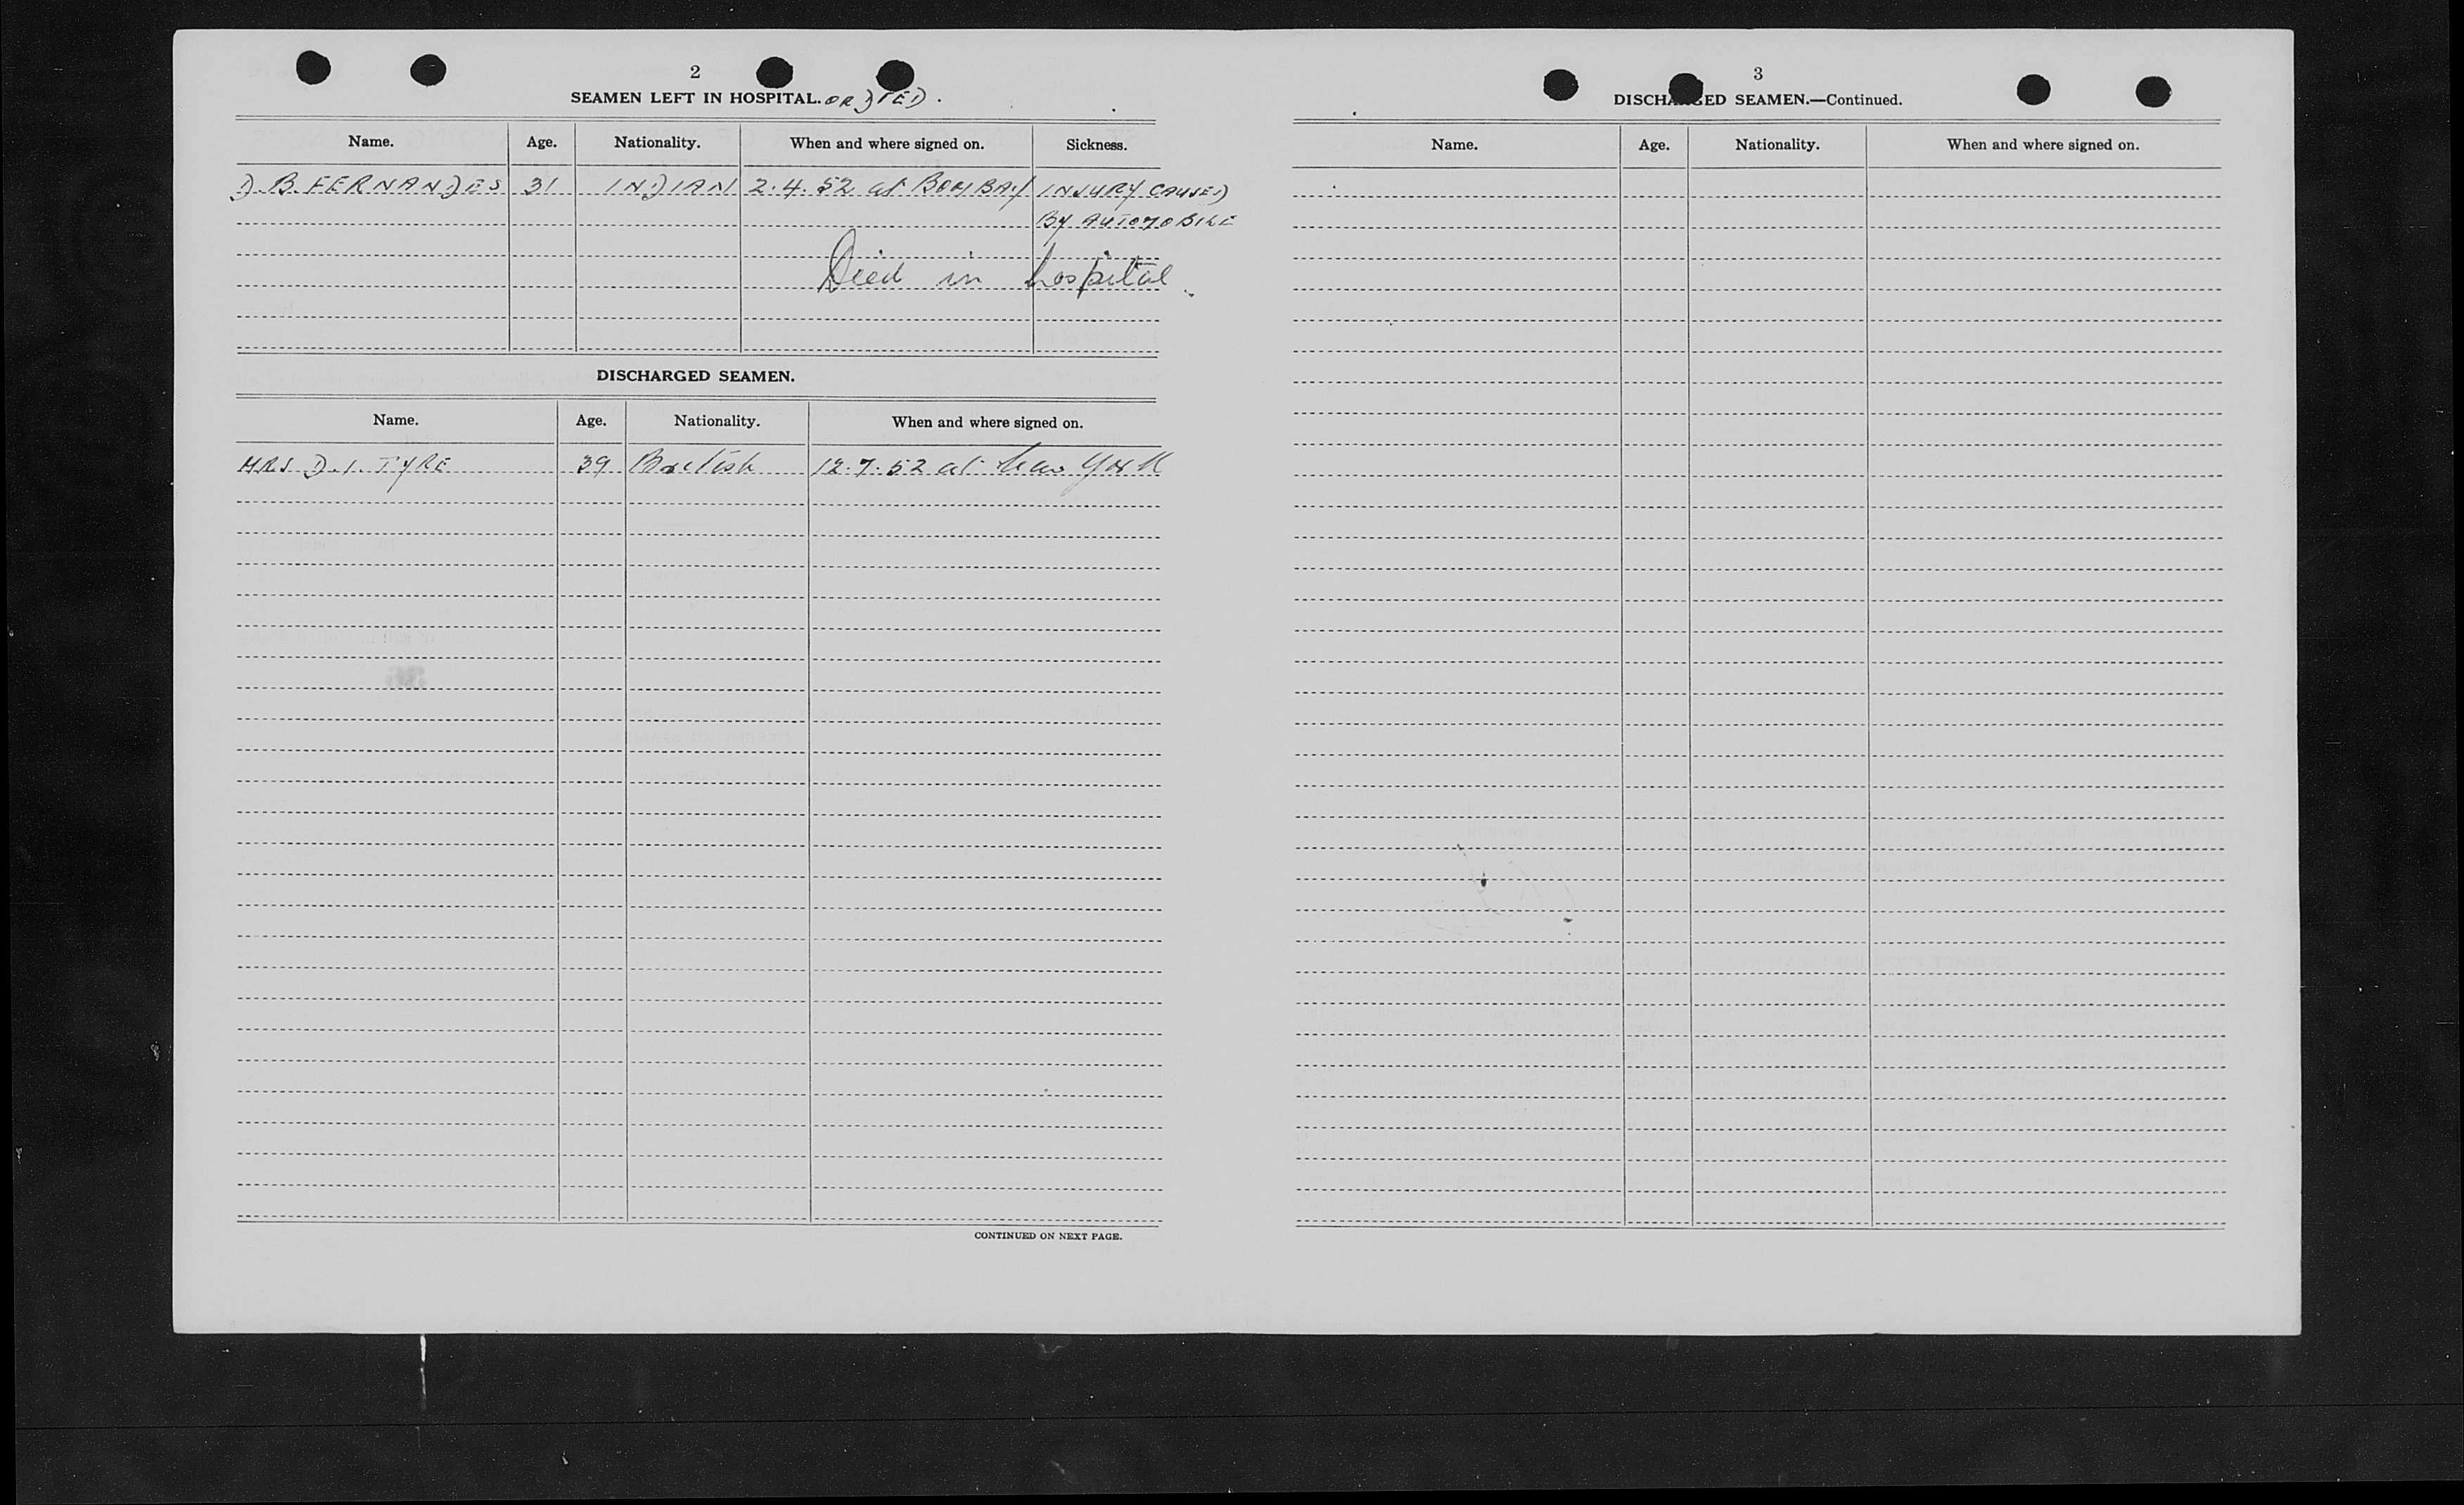 2
SEAMEN LEFT IN HOSPITAL. OR DIED.
Name. Age. Nationality. When and where signed on. Sickness.
D. B. FERNANDES 31 INDIAN 2.4.52 at BOMBAY INJURY CAUSED
BY AUTOMOBILE
Died in hospital.
DISCHARGED SEAMEN.
Name. Age. Nationality. When and where signed on.
MRS. D. I. TYRE 39 British 12.7.52 at New York
CONTINUED ON NEXT PAGE.
3
DISCHARGED SEAMEN.—Continued.
Name. Age. Nationality. When and where signed on.